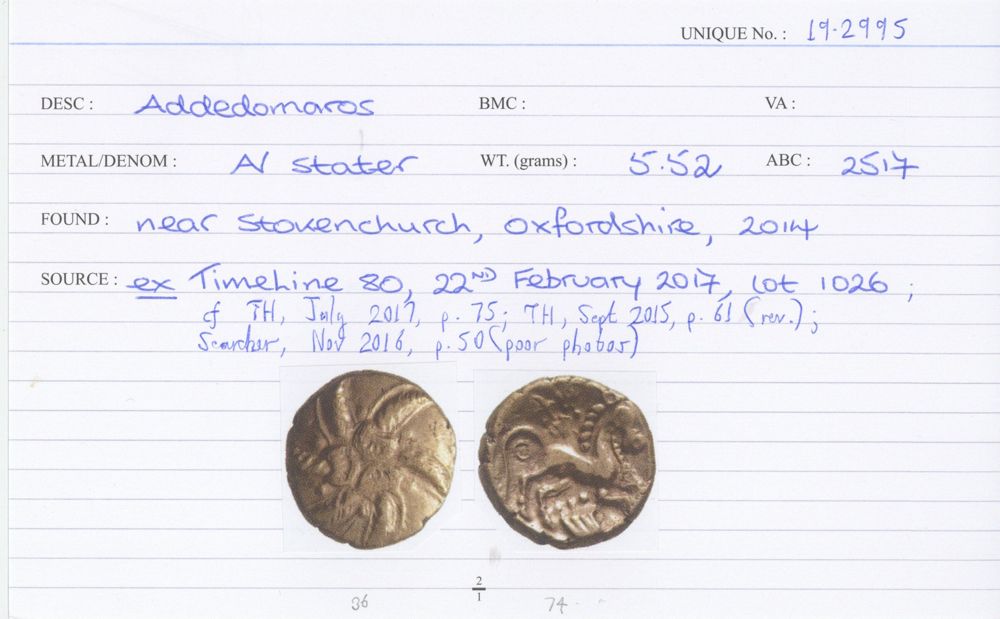 UNIQUE No. : 19.2995
DESC : Addedomaros BMC : VA :
METAL/DENOM : AV stater WT. (grams) : 5.52 ABC : 2517
FOUND : near Stokenchurch, Oxfordshire, 2014
SOURCE : ex Timeline 80, 22ND February 2017, lot 1026 ;
cf TH, July 2017, p. 75; TH, Sept 2015, p. 61 (rev.) ;
Searcher, Nov 2016, p. 50 (poor photos)
2
1
36 74